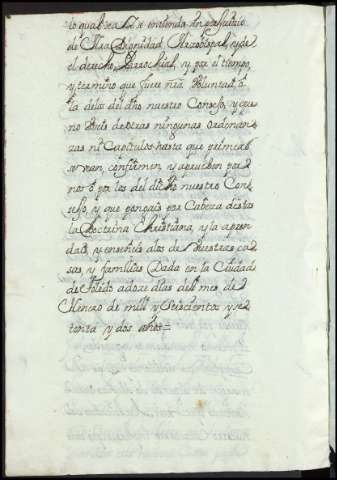 lo qual sea i se entienda sin perjuicio
de Nra Dignidad Arzobispal, y de
el derecho Parrochial, y por el tiempo,
y termino que fuere nra Voluntad, ô
la delos del dho nuestro Consejo, y que
no Useis de otras ningunas ordenan-
zas ni Capitulos hasta que primero
se vean, confirmen, y aprueben por
nos ô por los del dicho nuestro Con-
sejo, y que pongais por Cabeza destas
la Doctrina Christiana, y la apren-
dais, y enseñeis alos de Vuestras ca-
sas, y familias Dada en la Ciudad
de Toledo a doze dias del mes de
Henero de mill y Seiscientos y se-
tenta y dos años=